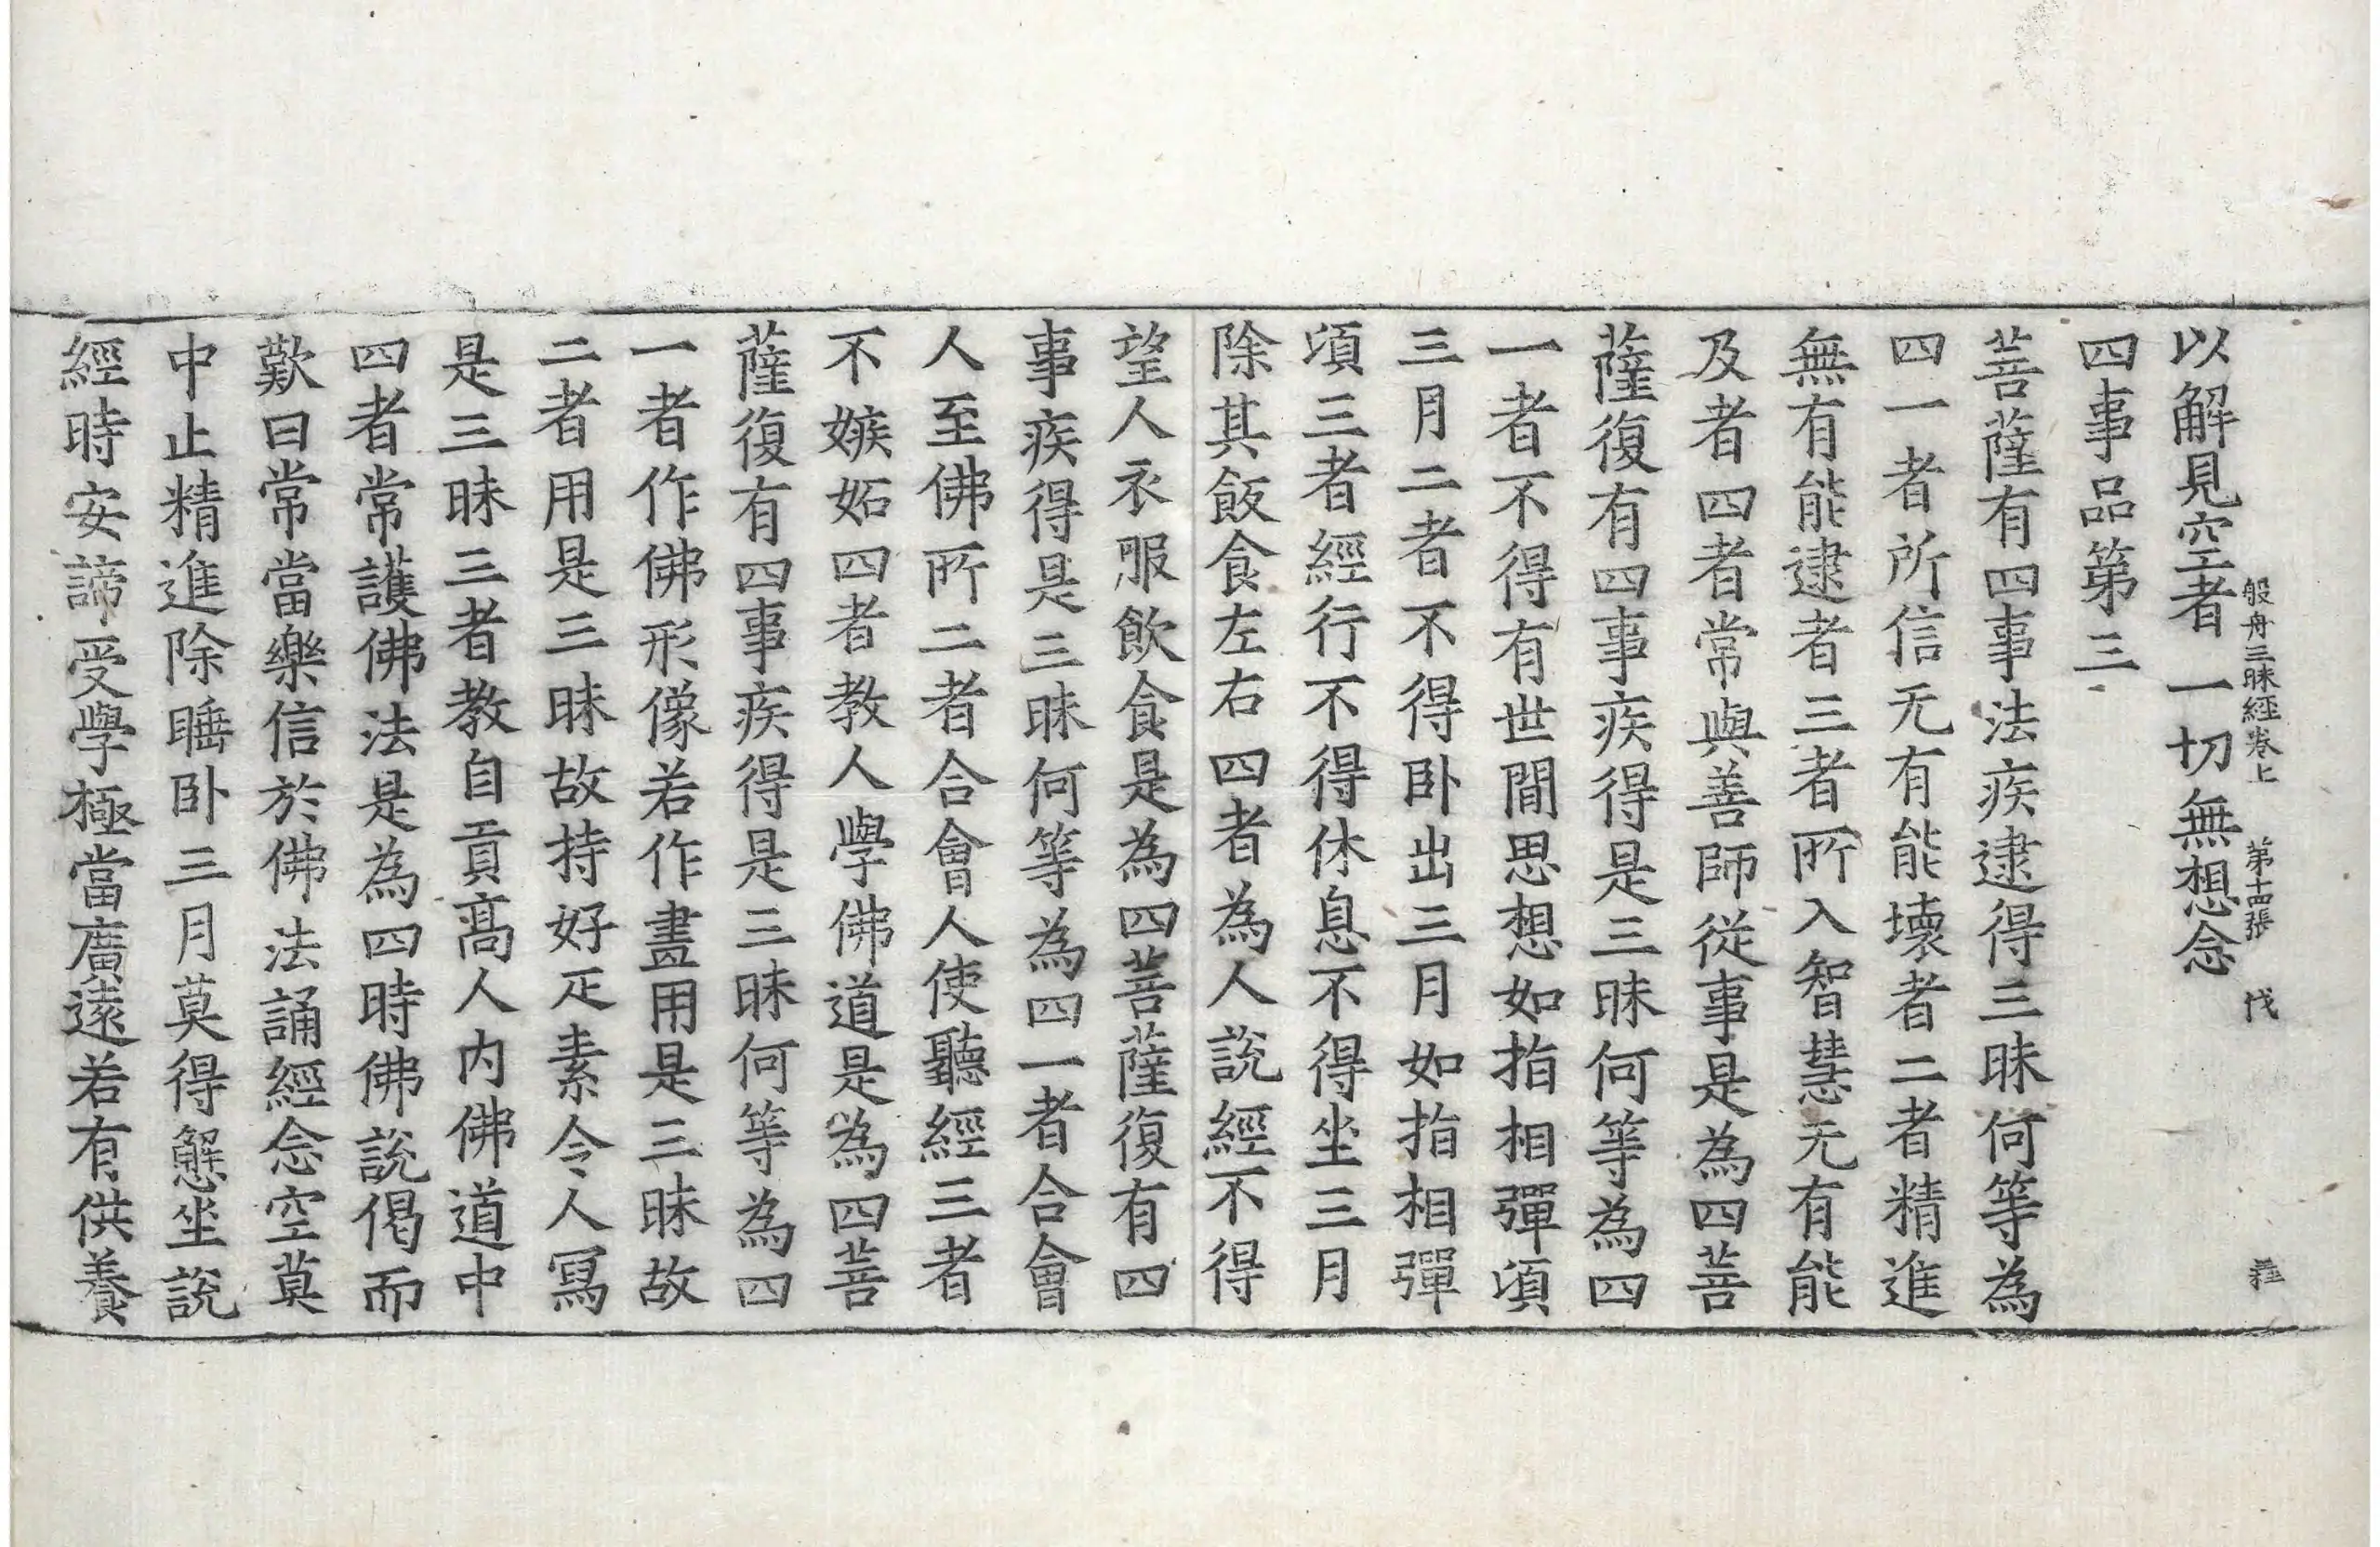 般舟三昧經卷上　第十四張　伐
以解見空者一切無想念
四事品第三
菩薩有四事法疾逮得三昧何等為
四一者所信无有能壞者二者精進
無有能逮者三者所入智慧无有能
及者四者常與善師從事是為四菩
薩復有四事疾得是三昧何等為四
一者不得有世閒思想如指相彈頃
三月二者不得臥出三月如指相彈
頃三者經行不得休息不得坐三月
除其飯食左右四者為人說經不得
望人衣服飲食是為四菩薩復有四
事疾得是三昧何等為四一者合會
人至佛所二者合會人使聽經三者
不嫉妬四者教人學佛道是為四菩
薩復有四事疾得是三昧何等為四
一者作佛形像若作畫用是三昧故
二者用是三昧故持好疋素令人寫
是三昧三者教自貢高人內佛道中
四者常護佛法是為四時佛說偈而
歎曰常當樂信於佛法誦經念空莫
中止精進除睡臥三月莫得懈坐說
經時安諦受學極當廣遠若有供養